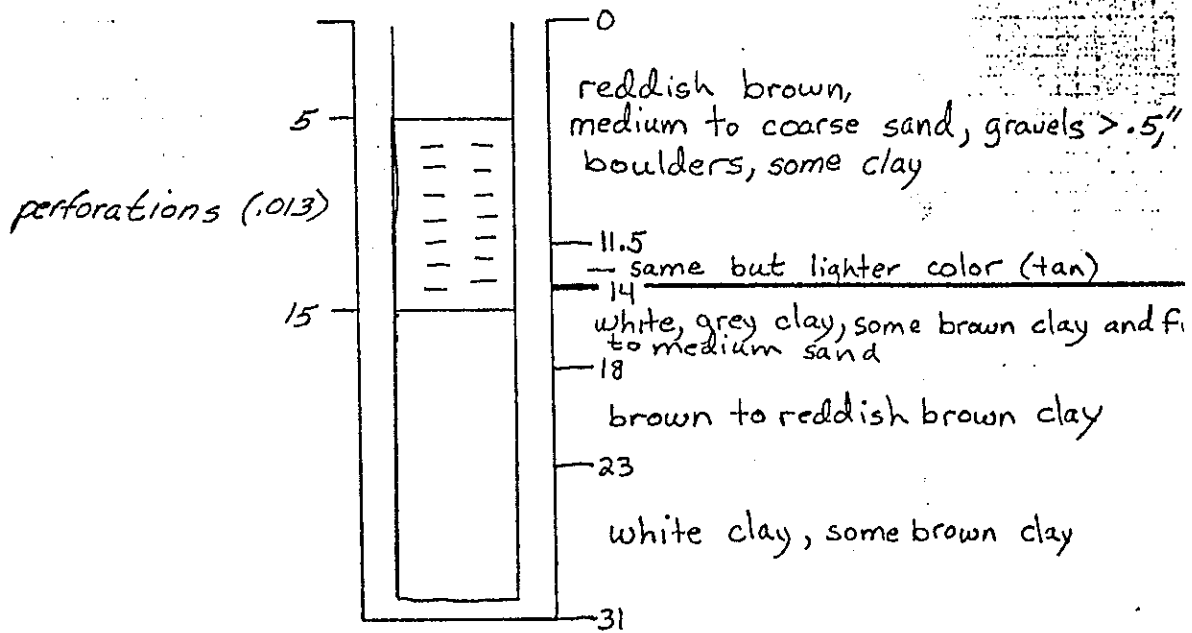 0
reddish brown,
5
medium to coarse sand, gravels > .5,"
boulders, some clay
perforations (.013)
11.5
same but lighter color (tan)
14
15
white, grey clay, some brown clay and
to medium sand
18
brown to reddish brown clay
23
white clay, some brown clay
31